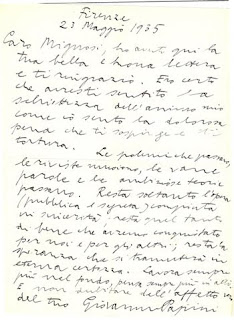 Firenze
23 Maggio 1935
Caro Mignosi, ho avuto qui la
tua bella e buona lettera
e ti ringrazio. Ero certo
che avresti sentito la
schiettezza dell'animo mio
come io sento la dolorosa
pena che ti sospinge e ti
tortura.
Le polemiche passano,
le riviste muoiono, le varie
parole e le ambiziose teorie
passano. Resta soltanto l'opera
(pubblica e segreta) compiuta
in sincerità; resta quel tanto
di bene che avremo conquistato
per noi e per gli altri; resta la
speranza che si tramuterà in
eterna certezza. Lavora sempre
più nel fondo, pensa sempre più in alto.
E non dubitare dell'affetto
del tuo Giovanni Papini